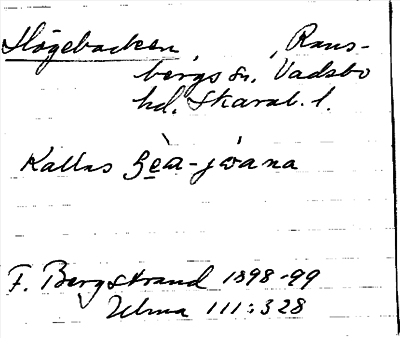 Högebacken, Rans-
bergs sn. Vadsbo
hd. Skarab. l.
Kallas gèa-jòana
F. Bergstrand 1898-99
Ulma 111:328